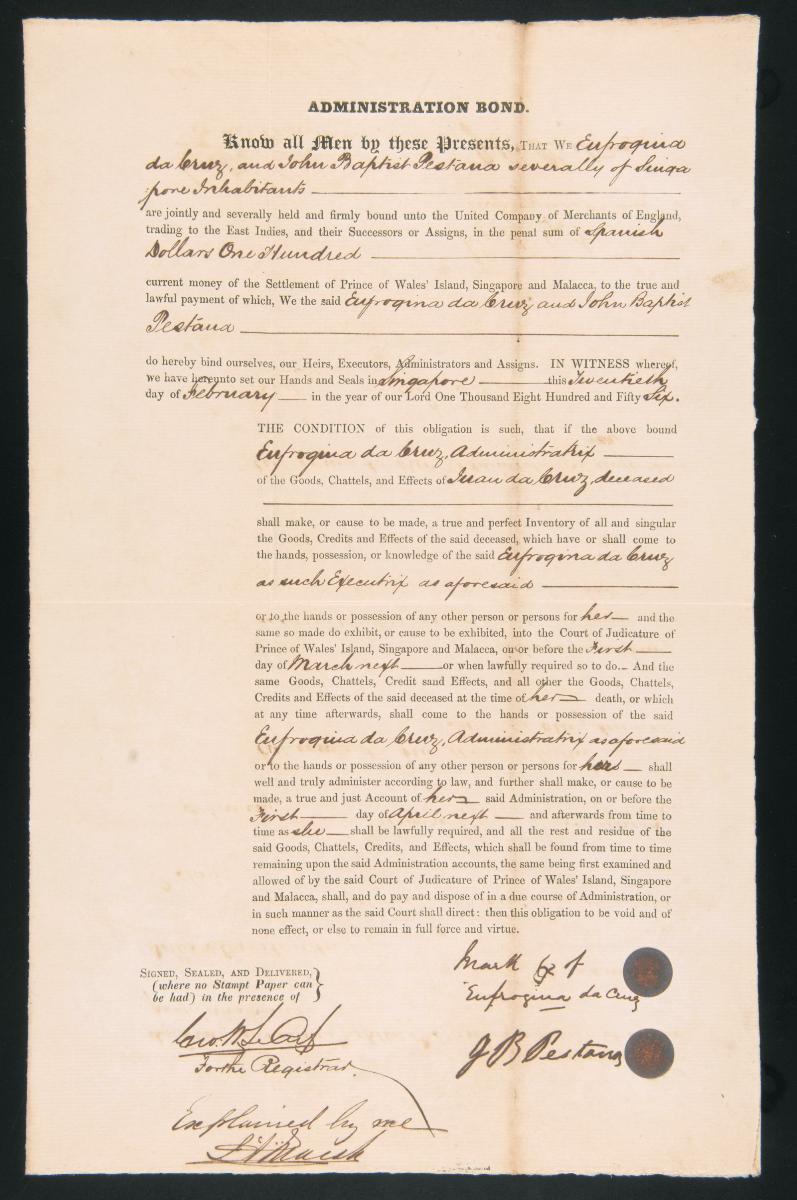 ADMINISTRATION BOND.
Know all Men by these Presents, THAT WE Eufrogina
da Cruz, and John Baptist Pestana severally of Singa
pore Inhabitants
are jointly and severally held and firmly bound unto the United Company of Merchants of England,
trading to the East Indies, and their Successors or Assigns, in the penal sum of Spanish
Dollars One Hundred
current money of the Settlement of Prince of Wales' Island, Singapore and Malacca, to the true and
lawful payment of which, We the said Eufrogina da Cruz and John Baptist
Pestana
do hereby bind ourselves, our Heirs, Executors, Administrators and Assigns. IN WITNESS whereof,
we have hereunto set our Hands and Seals in Singapore this Twentieth
day of February in the year of our Lord One Thousand Eight Hundred and Fifty Six.
THE CONDITION of this obligation is such, that if the above bound
Eufrogina da Cruz, Administratrix
of the Goods, Chattels, and Effects of Juan da Cruz, deceased
shall make, or cause to be made, a true and perfect Inventory of all and singular
the Goods, Credits and Effects of the said deceased, which have or shall come to
the hands, possession, or knowledge of the said Eufrogina da Cruz
as such Executrix as aforesaid
or to the hands or possession of any other person or persons for her and the
same so made do exhibit, or cause to be exhibited, into the Court of Judicature of
Prince of Wales' Island, Singapore and Malacca, on or before the First
day of March next or when lawfully required so to do.. And the
same Goods, Chattels, Credit sand Effects, and all other the Goods, Chattels,
Credits and Effects of the said deceased at the time of her death, or which
at any time afterwards, shall come to the hands or possession of the said
Eufrogina da Cruz, Administratrix as aforesaid
or to the hands or possession of any other person or persons for hers shall
well and truly administer according to law, and further shall make, or cause to be
made, a true and just Account of her said Administration, on or before the
First day of April next and afterwards from time to
time as she shall be lawfully required, and all the rest and residue of the
said Goods, Chattels, Credits, and Effects, which shall be found from time to time
remaining upon the said Administration accounts, the same being first examined and
allowed of by the said Court of Judicature of Prince of Wales' Island, Singapore
and Malacca, shall, and do pay and dispose of in a due course of Administration, or
in such manner as the said Court shall direct: then this obligation to be void and of
none effect, or else to remain in full force and virtue.
SIGNED, SEALED, AND DELIVERED,
(where no Stampt Paper can
be had) in the presence of
For the Registrar.
Explained by me
Mark of
Eufrogina da Cruz
J B Pestana